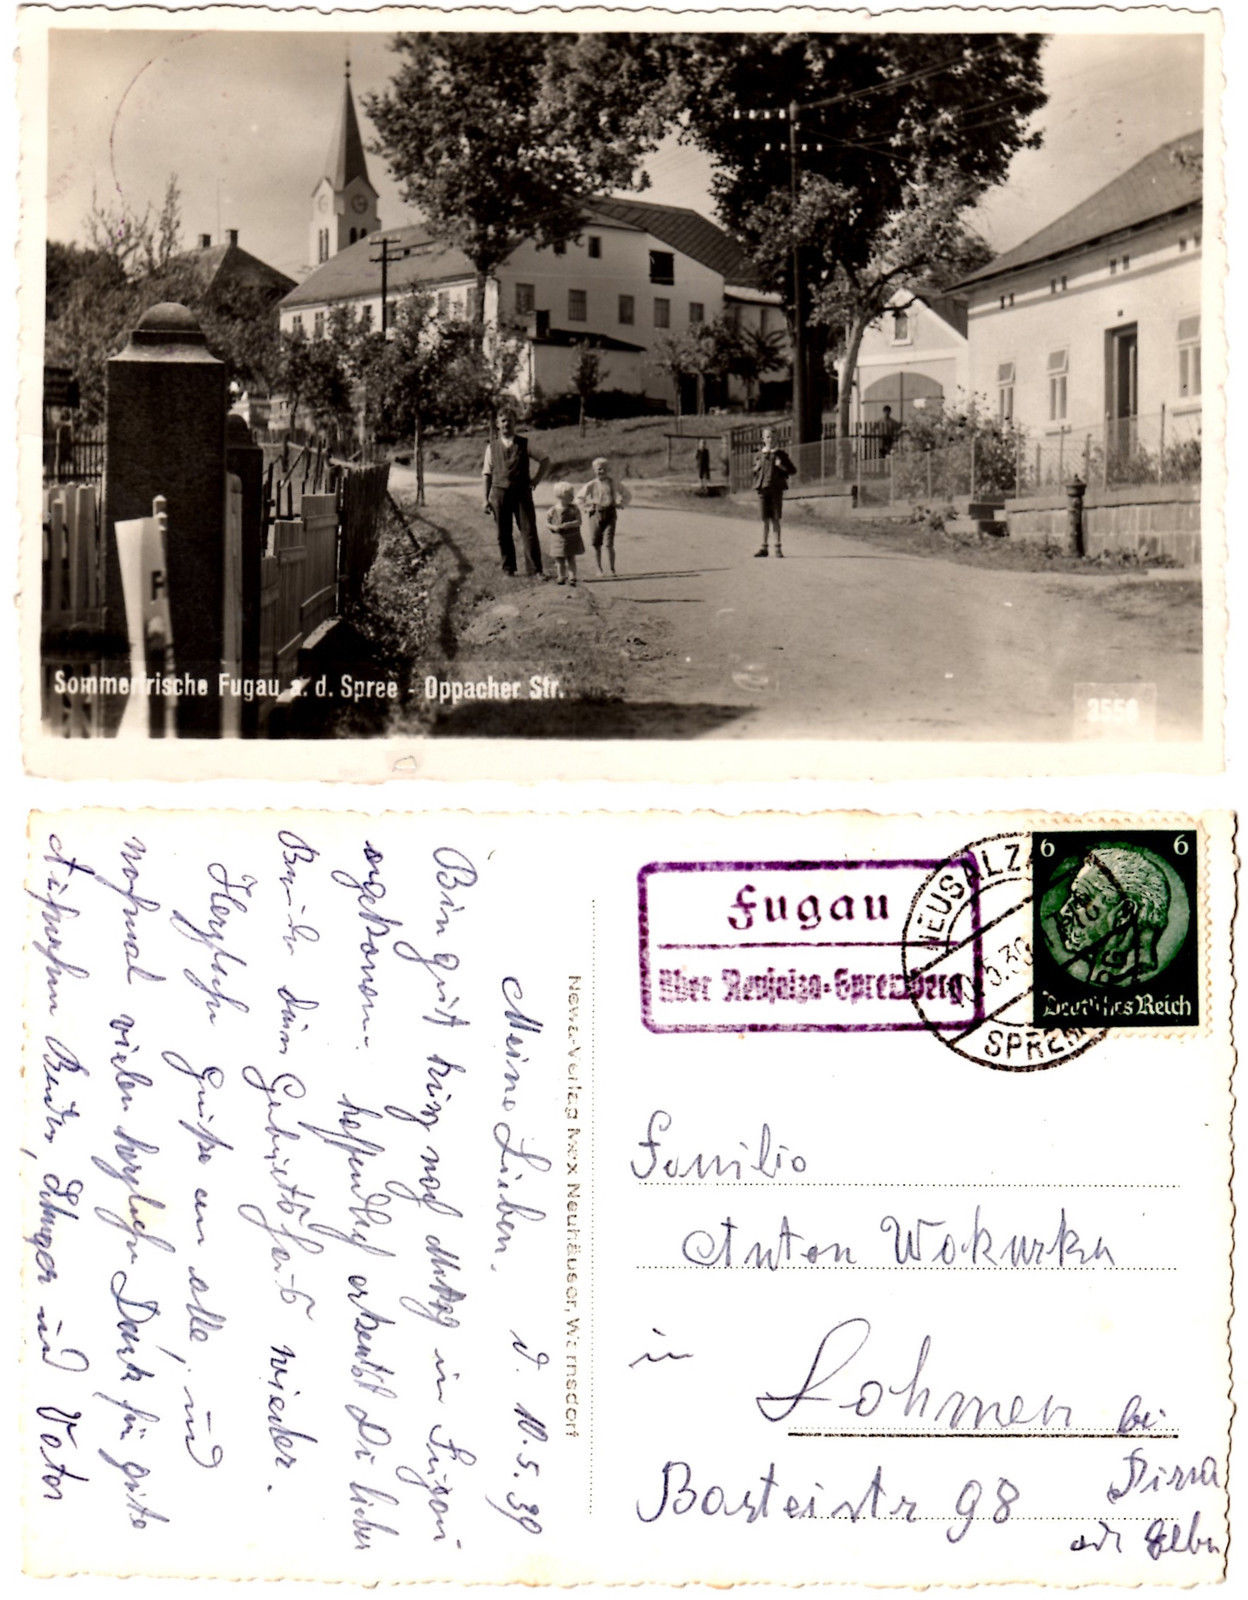 Sommerfrische Fugau a. d. Spree - Oppacher Str.
3550
Meine Lieben.
d. 10.5.39
Bin gut kurz nach Mittag in Fugau
angekommen. hoffendlich erkennst Du lieber
Bruder dein Geburtshaus wieder.
Herzliche Grüße an alle, und
nochmal vielen herzlichen Dank für gute
Bruder, Schwager und Vater
Newa-Verlag Max Neuhäuser, Warnsdorf
Fugau
über Neusalza-Spremberg
NEUSALZA
5.39
SPREM
6 6
Deutsches Reich
Familie
Anton Wokurka
in
Lohmen bei
Pirna
Basteistr 98
Elbe